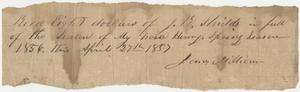 Recd eight dollars of J. B. Shields in full
of the season of My horse Henry Spring season
1856. this April 27th 1857
James William